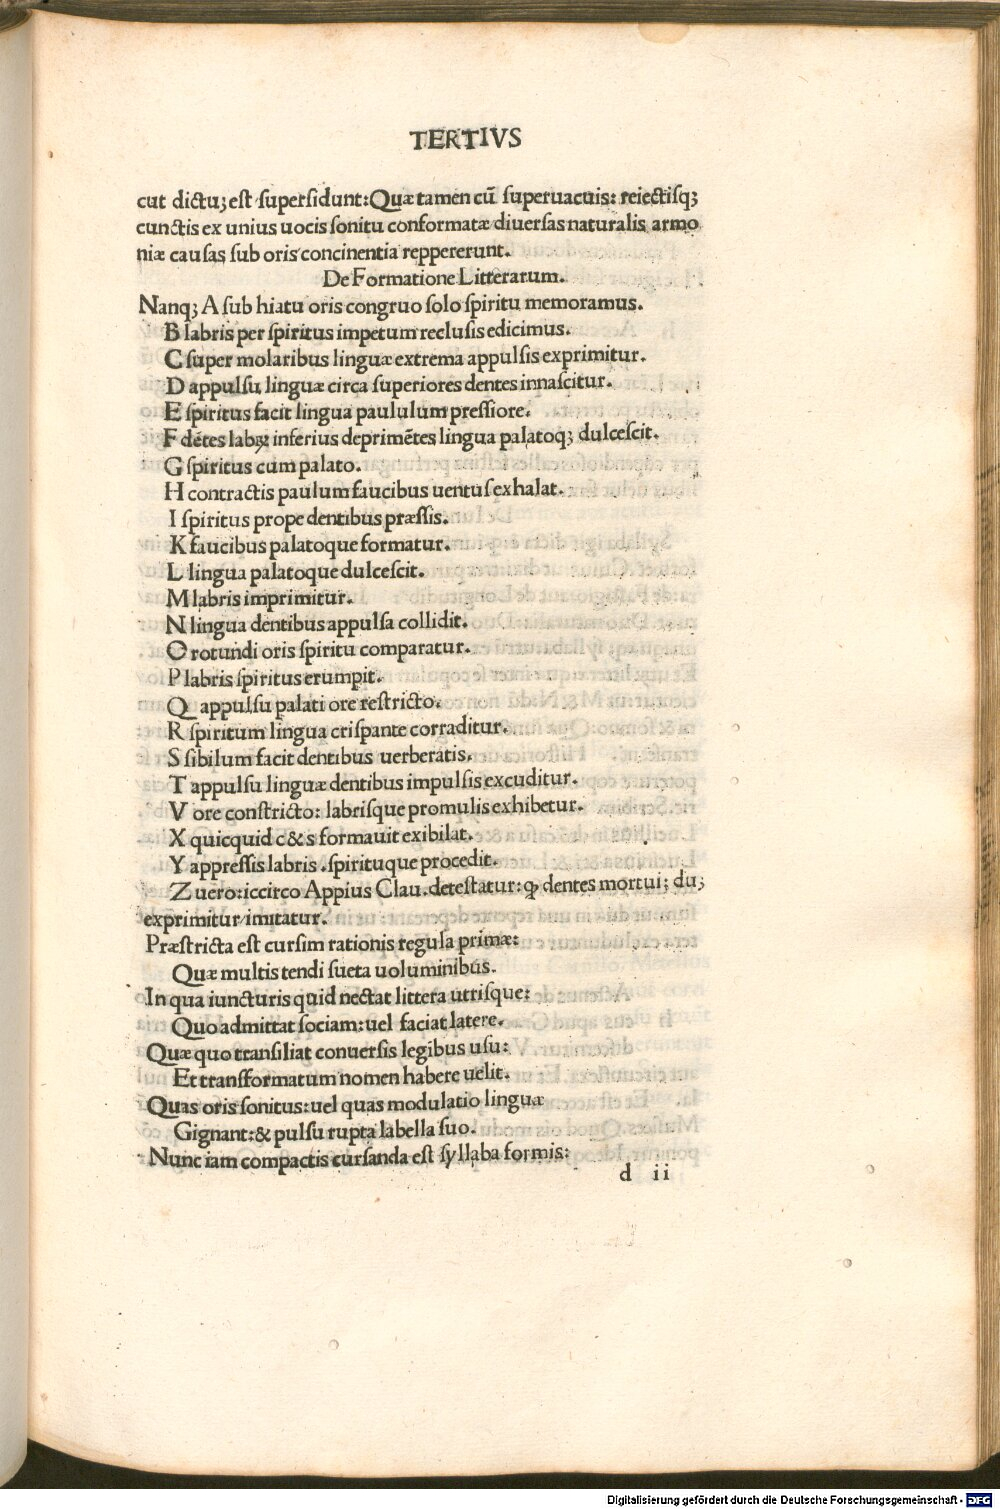 TERTIVS
cut dictuꝫ est supersidunt: Quæ tamen cū superuacuis: reiectisqꝫ
cunctis ex unius uocis sonitu conformatæ diuersas naturalis armo
niæ causas sub oris concinentia reppererunt.
De Formatione Litterarum.
Nanqꝫ A sub hiatu oris congruo solo spiritu memoramus.
B labris per spiritus impetum reclusis edicimus.
C super molaribus linguæ extrema appulsis exprimitur.
D appulsu linguæ circa superiores dentes innascitur.
E spiritus facit lingua paululum pressiore.
F dētes labꝝ inferius deprimētes lingua palatoqꝫ dulcescit.
G spiritus cum palato.
H contractis paulum faucibus uentus exhalat.
I spiritus prope dentibus præssis.
K faucibus palatoque formatur.
L lingua palatoque dulcescit.
M labris imprimitur.
N lingua dentibus appulsa collidit.
O rotundi oris spiritu comparatur.
P labris spiritus erumpit.
Q appulsu palati ore restricto.
R spiritum lingua crispante corraditur.
S sibilum facit dentibus uerberatis.
T appulsu linguæ dentibus impulsis excuditur.
V ore constricto: labrisque promulis exhibetur.
X quicquid c & s formauit exibilat.
Y appressis labris. spirituque procedit.
Z uero: iccirco Appius Clau. detestatur: ꝙ dentes mortui: duꝫ
exprimitur imitatur.
Præstricta est cursim rationis regula primæ:
Quæ multis tendi sueta uoluminibus.
In qua iuncturis quid nectat littera utrisque:
Quo admittat sociam: uel faciat latere.
Quæ quo transiliat conuersis legibus usu:
Et transformatum nomen habere uelit.
Quas oris sonitus: uel quas modulatio linguæ
Gignant: & pulsu rupta labella suo.
Nunc iam compactis cursanda est syllaba formis:
d ii
Digitalisierung gefördert durch die Deutsche Forschungsgemeinschaft - DFG